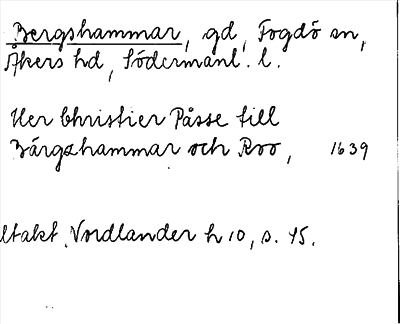 Bergshammar, gd, Fogdö sn,
Åkers hd, Södermanl. l.
Her Christier Påsse till
Bärgzhammar och Roo, 1639
ltakt. Nordlander h 10, s. 45.